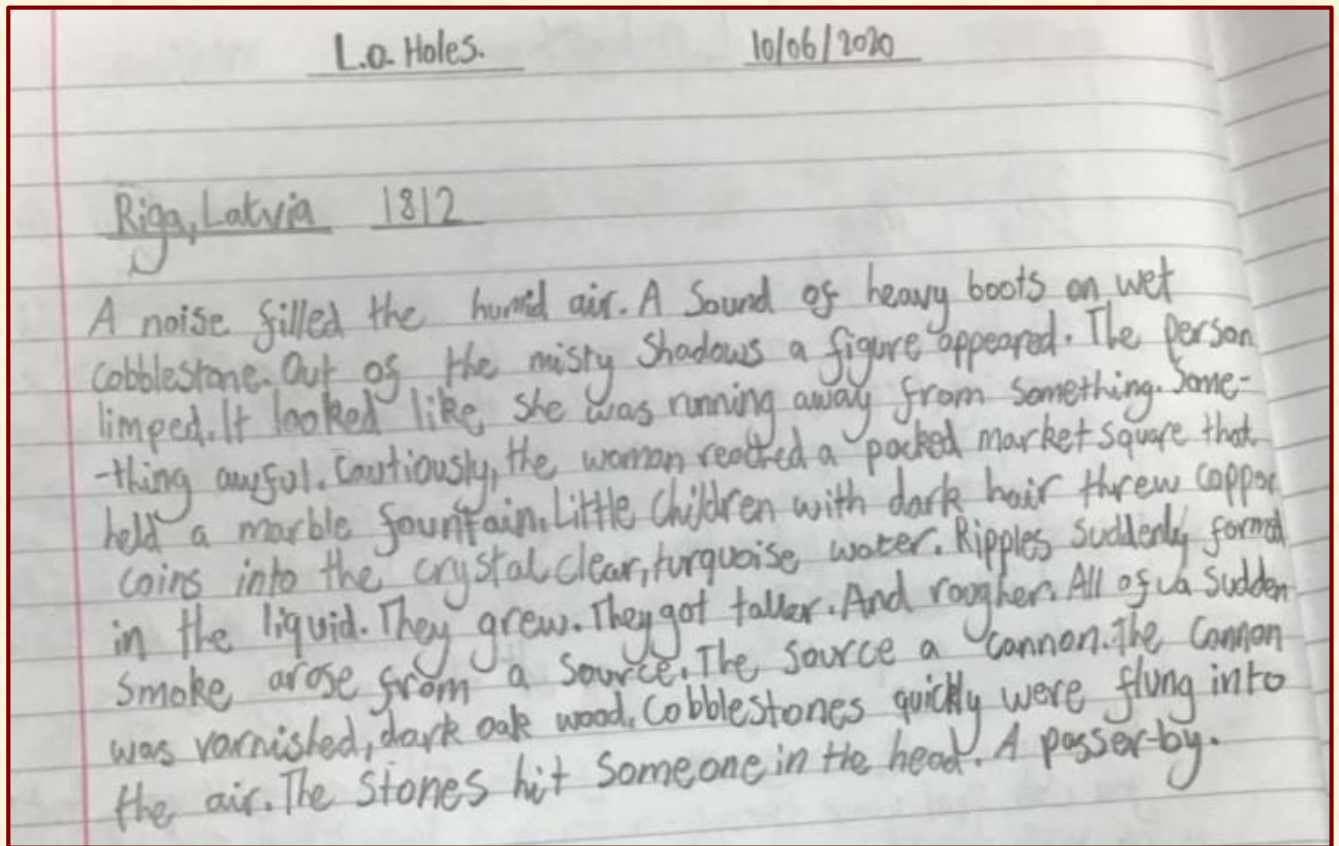 L.O. Holes. 10/06/2020
Riga, Latvia 1812
A noise filled the humid air. A Sound of heavy boots on wet
cobblestone. Out of the misty Shadows a figure appeared. The person
limped. It looked like she was running away from something. Some-
-thing awful. Cautiously, the woman reached a packed market square that
held a marble fountain. Little children with dark hair threw coppor
coins into the crystal clear, turquoise water. Ripples suddenly formed
in the liquid. They grew. They got taller. And rougher. All of a sudden
smoke arose from a source. The source a cannon. The cannon
was varnished, dark oak wood. Cobblestones quickly were flung into
the air. The stones hit someone in the head. A passer-by.